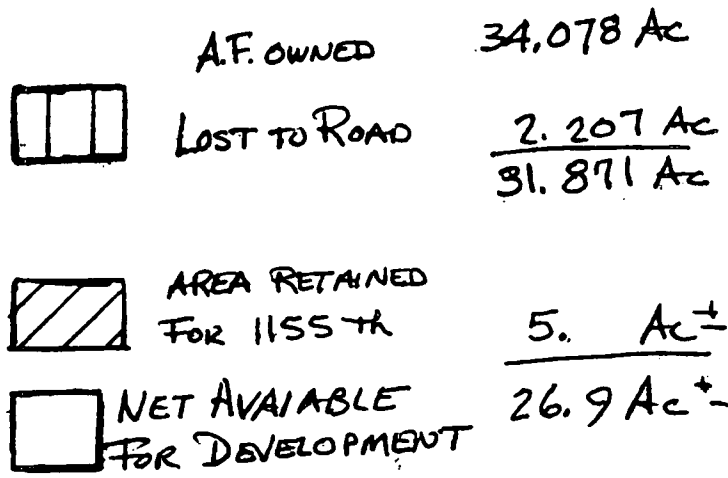 A.F. OWNED 34.078 Ac
LOST TO ROAD 2.207 Ac
31.871 Ac
AREA RETAINED
FOR 1155 th 5. Ac ±
NET AVAIABLE 26.9 Ac ±
FOR DEVELOPMENT